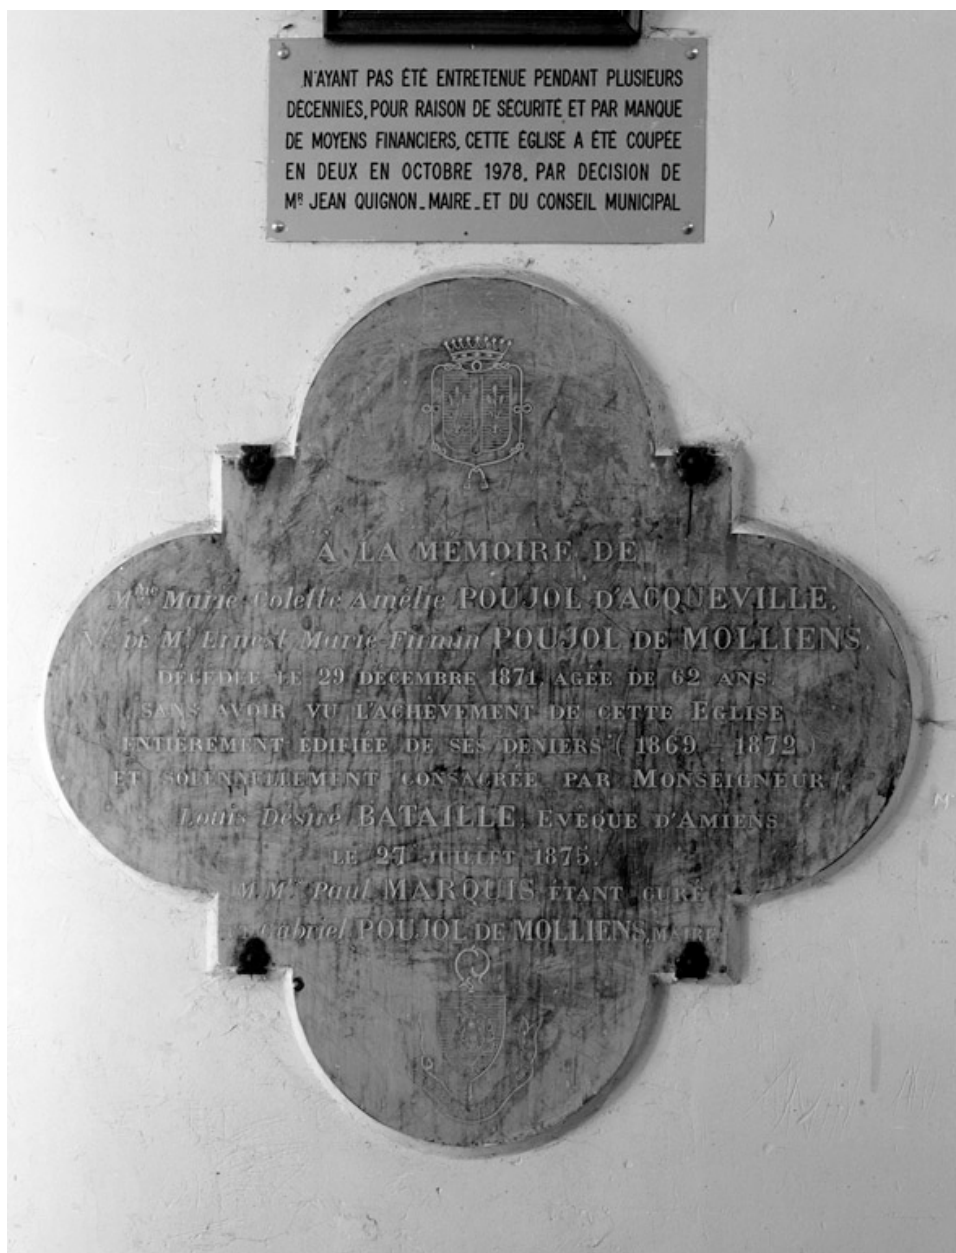 N'AYANT PAS ÉTÉ ENTRETENUE PENDANT PLUSIEURS
DÉCENNIES, POUR RAISON DE SÉCURITÉ ET PAR MANQUE
DE MOYENS FINANCIERS, CETTE ÉGLISE A ÉTÉ COUPÉE
EN DEUX EN OCTOBRE 1978, PAR DECISION DE
MR JEAN QUIGNON_MAIRE_ET DU CONSEIL MUNICIPAL
À LA MÉMOIRE DE
Mme Marie Colette Amélie POUJOL D'ACQUEVILLE,
Ve DE Mr Ernest Marie-Firmin POUJOL DE MOLLIENS,
DÉCÉDÉE LE 29 DÉCEMBRE 1871, AGÉE DE 62 ANS.
SANS AVOIR VU L'ACHÈVEMENT DE CETTE EGLISE
ENTIÈREMENT ÉDIFIÉE DE SES DENIERS (1869 - 1872)
ET SOLENNELLEMENT CONSACRÉE PAR MONSEIGNEUR
Louis Désiré BATAILLE, EVÊQUE D'AMIENS
LE 27 JUILLET 1875.
M.Mrs Paul MARQUIS ÉTANT CURÉ
Gabriel POUJOL DE MOLLIENS, MAIRE